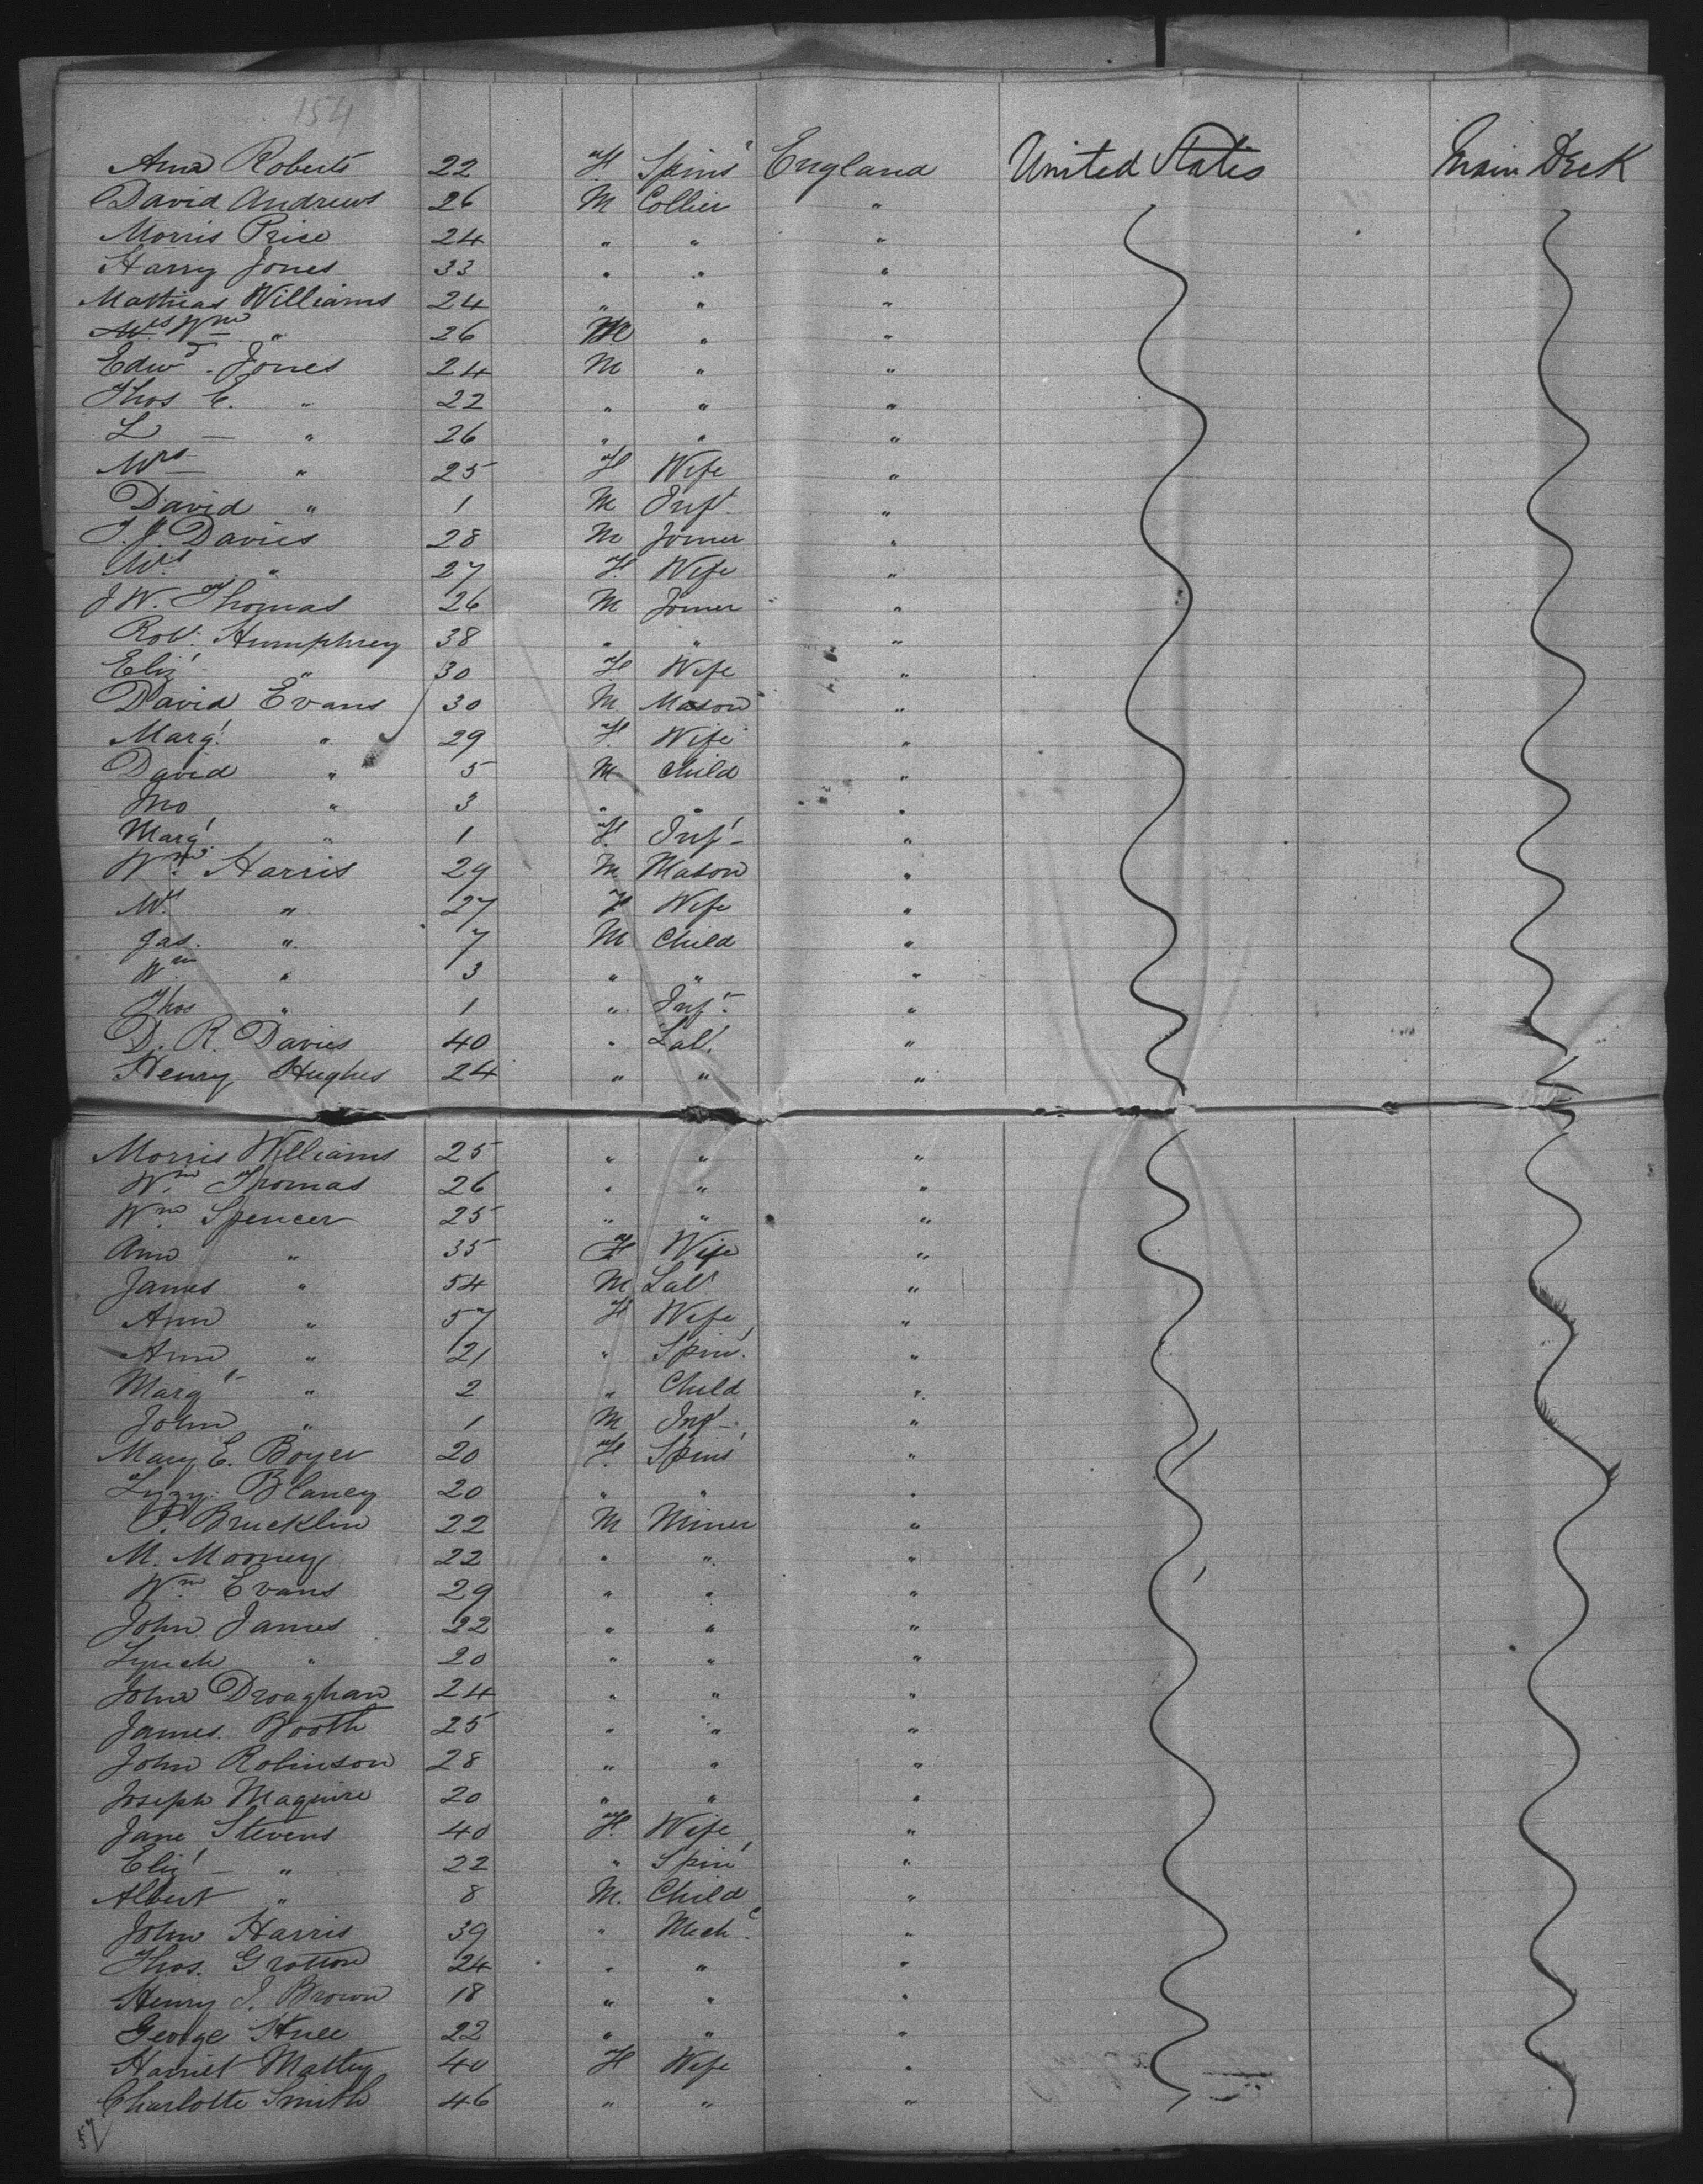 154
Ann Roberts 22 F. Spins^r England United States Main Deck
David Andrews 26 M Collier "
Morris Price 24 " " "
Harry Jones 33 " " "
Mathias Williams 24 " " "
Wm " 26 M " "
Edwd. Jones 24 M " "
Thos E. " 22 " " "
L — " 26 " " "
Mrs — " 25 F Wife "
David " 1 M Inft. "
T. J. Davies 28 M Joiner "
Mrs " 27 F. Wife "
J W. Thomas 26 M Joiner "
Robt. Humphrey 38 " " "
Eliz " 30 F Wife "
David Evans 30 M. Mason "
Margt. " 29 F. Wife "
David " 5 M Child "
Jno " 3 " " "
Margt. " 1 F. Inft "
Wm. Harris 29 M Mason "
Mrs. " 27 F Wife "
Jas. " 7 M Child "
Wm " 3 " " "
Thos " 1 " Inft. "
D. R. Davies 40 " Lab^r. "
Henry Hughes 24 " " "
Morris Williams 25 " " "
Wm. Thomas 26 " " "
Wm. Spencer 25 " " "
Ann " 35 F Wife "
James " 54 M Lab^r "
Ann " 57 F Wife "
Ann " 21 " Spin^r. "
Margt " 2 " Child "
John " 1 M Inft. "
Mary E. Boyer 20 F. Spins^r "
Lizzy Blaney 20 " " "
P. Brucklin 22 M Miner "
M. Mooney 22 " " "
Wm. Evans 29 " " "
John James 22 " " "
Lynch " 20 " " "
John Droaghan 24 " " "
James. Booth 25 " " "
John Robinson 28 " " "
Joseph Maguire 20 " " "
Jane Stevens 40 F. Wife "
Eliz — " 22 " Spin^r "
Albert " 8 M. Child "
John Harris 39 " Mech^c. "
Thos. Grotton 24 " " "
Henry J. Brown 18 " " "
George 22 " " "
Harriet Mattey 40 F Wife "
Charlotte Smith 46 " " "
57